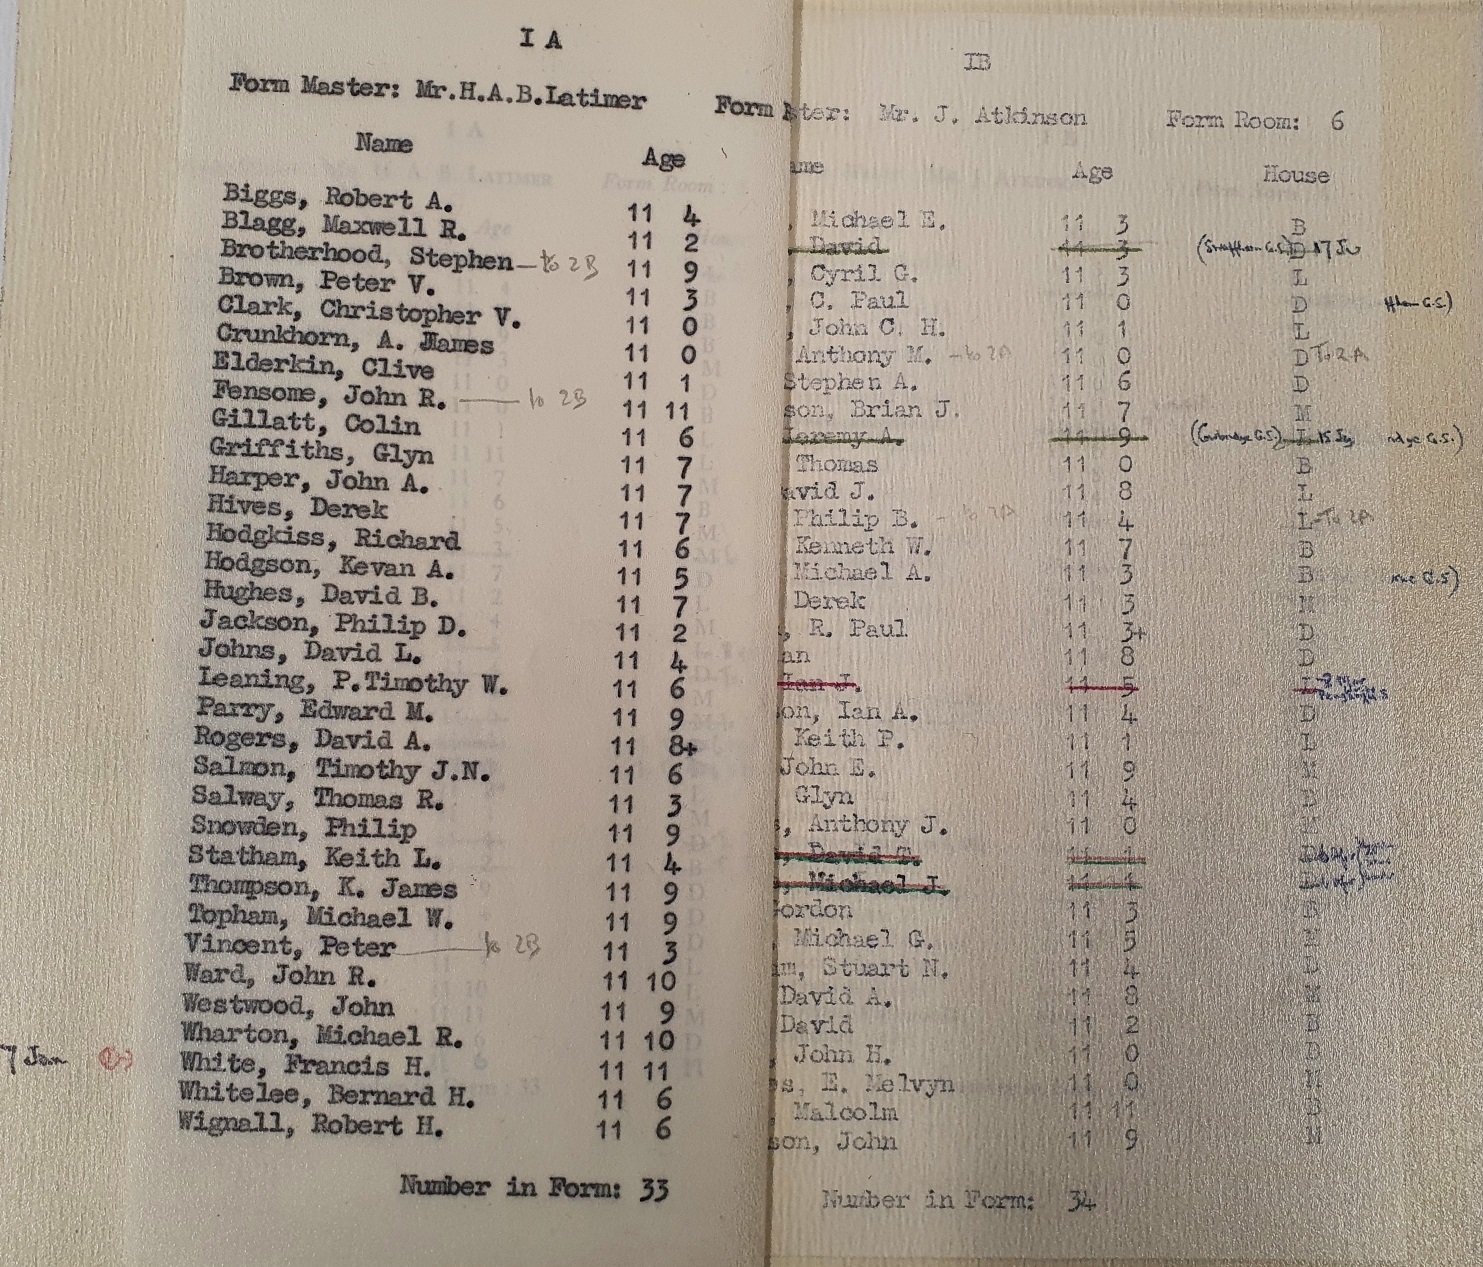 I A
Form Master: Mr.H.A.B.Latimer Form
Name Age
Biggs, Robert A. 11 4
Blagg, Maxwell R. 11 2
Brotherhood, Stephen - to 2B 11 9
Brown, Peter V. 11 3
Clark, Christopher V. 11 0
Crunkhorn, A. James 11 0
Elderkin, Clive 11 1
Fensome, John R. - to 2B 11 11
Gillatt, Colin 11 6
Griffiths, Glyn 11 7
Harper, John A. 11 7
Hives, Derek 11 7
Hodgkiss, Richard 11 6
Hodgson, Kevan A. 11 5
Hughes, David B. 11 7
Jackson, Philip D. 11 2
Johns, David L. 11 4
Leaning, P.Timothy W. 11 6
Parry, Edward M. 11 9
Rogers, David A. 11 8+
Salmon, Timothy J.N. 11 6
Salway, Thomas R. 11 3
Snowden, Philip 11 9
Statham, Keith L. 11 4
Thompson, K. James 11 9
Topham, Michael W. 11 9
Vincent, Peter - to 2B 11 3
Ward, John R. 11 10
Westwood, John 11 9
Wharton, Michael R. 11 10
7 Jan White, Francis H. 11 11
Whitelee, Bernard H. 11 6
Wignall, Robert H. 11 6
Number in Form: 33
IB
ster: Mr. J. Atkinson Form Room: 6
ame Age House
, Michael E. 11 3 B
, David 11 3 D 17
, Cyril G. 11 3 L
, C. Paul 11 0 D G.S.)
, John C. H. 11 1 L
Anthony M. - to 2A 11 0 D To 2A
Stephen A. 11 6 D
son, Brian J. 11 7 M
Jeremy A. 11 9 L 15 G.S.)
Thomas 11 0 B
avid J. 11 8 L
Philip B. - to 2A 11 4 L - To 2A
Kenneth W. 11 7 B
Michael A. 11 3 B G.S)
Derek 11 3 M
, R. Paul 11 3+ D
an 11 8 D
Ian J. 11 5 L
on, Ian A. 11 4 D
Keith P. 11 1 L
John E. 11 9 M
Glyn 11 4 B
, Anthony J. 11 0
, David T. 11 1 D
, Michael J. 11 1
Gordon 11 3 B
, Michael G. 11 5
am, Stuart N. 11 4 D
David A. 11 8 M
David 11 2 B
, John H. 11 0
s, E. Melvyn 11 0 M
, Malcolm 11 11 B
son, John 11 9 M
Number in Form: 34